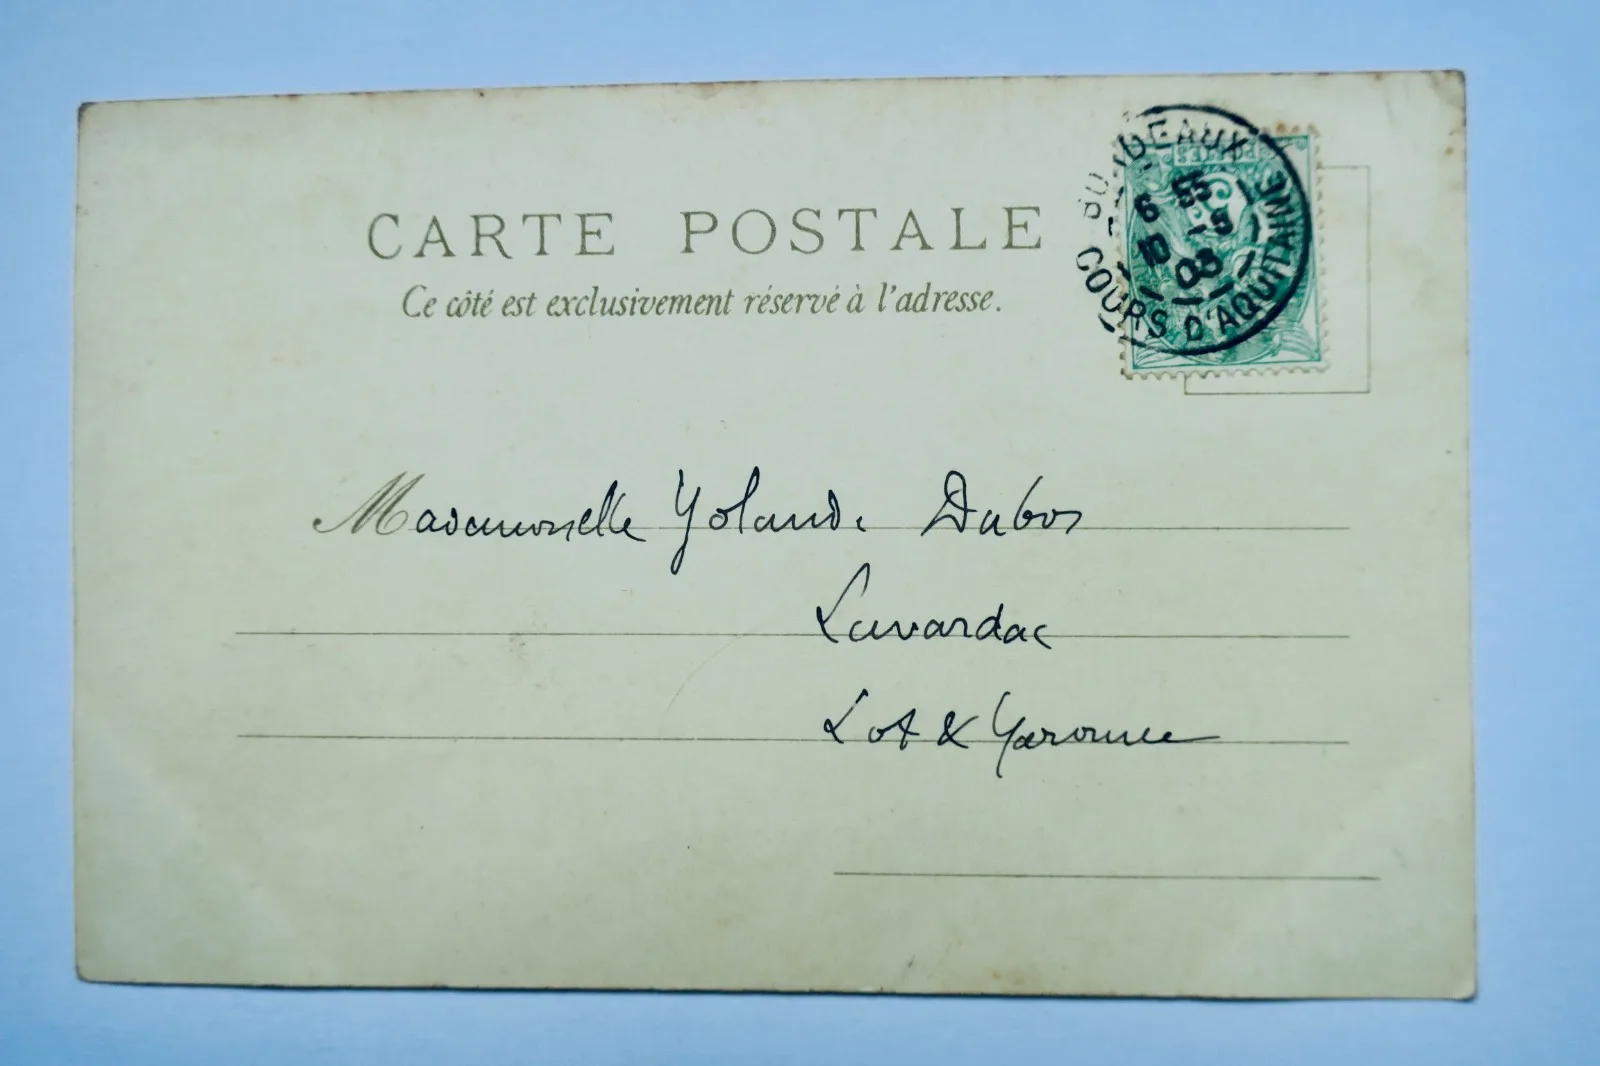 CARTE POSTALE
Ce côté est exclusivement réservé à l'adresse.
BORDEAUX
COURS D'AQUITAINE
03
Mademoiselle Yolande Dubos
Lavardac
Lot & Garonne